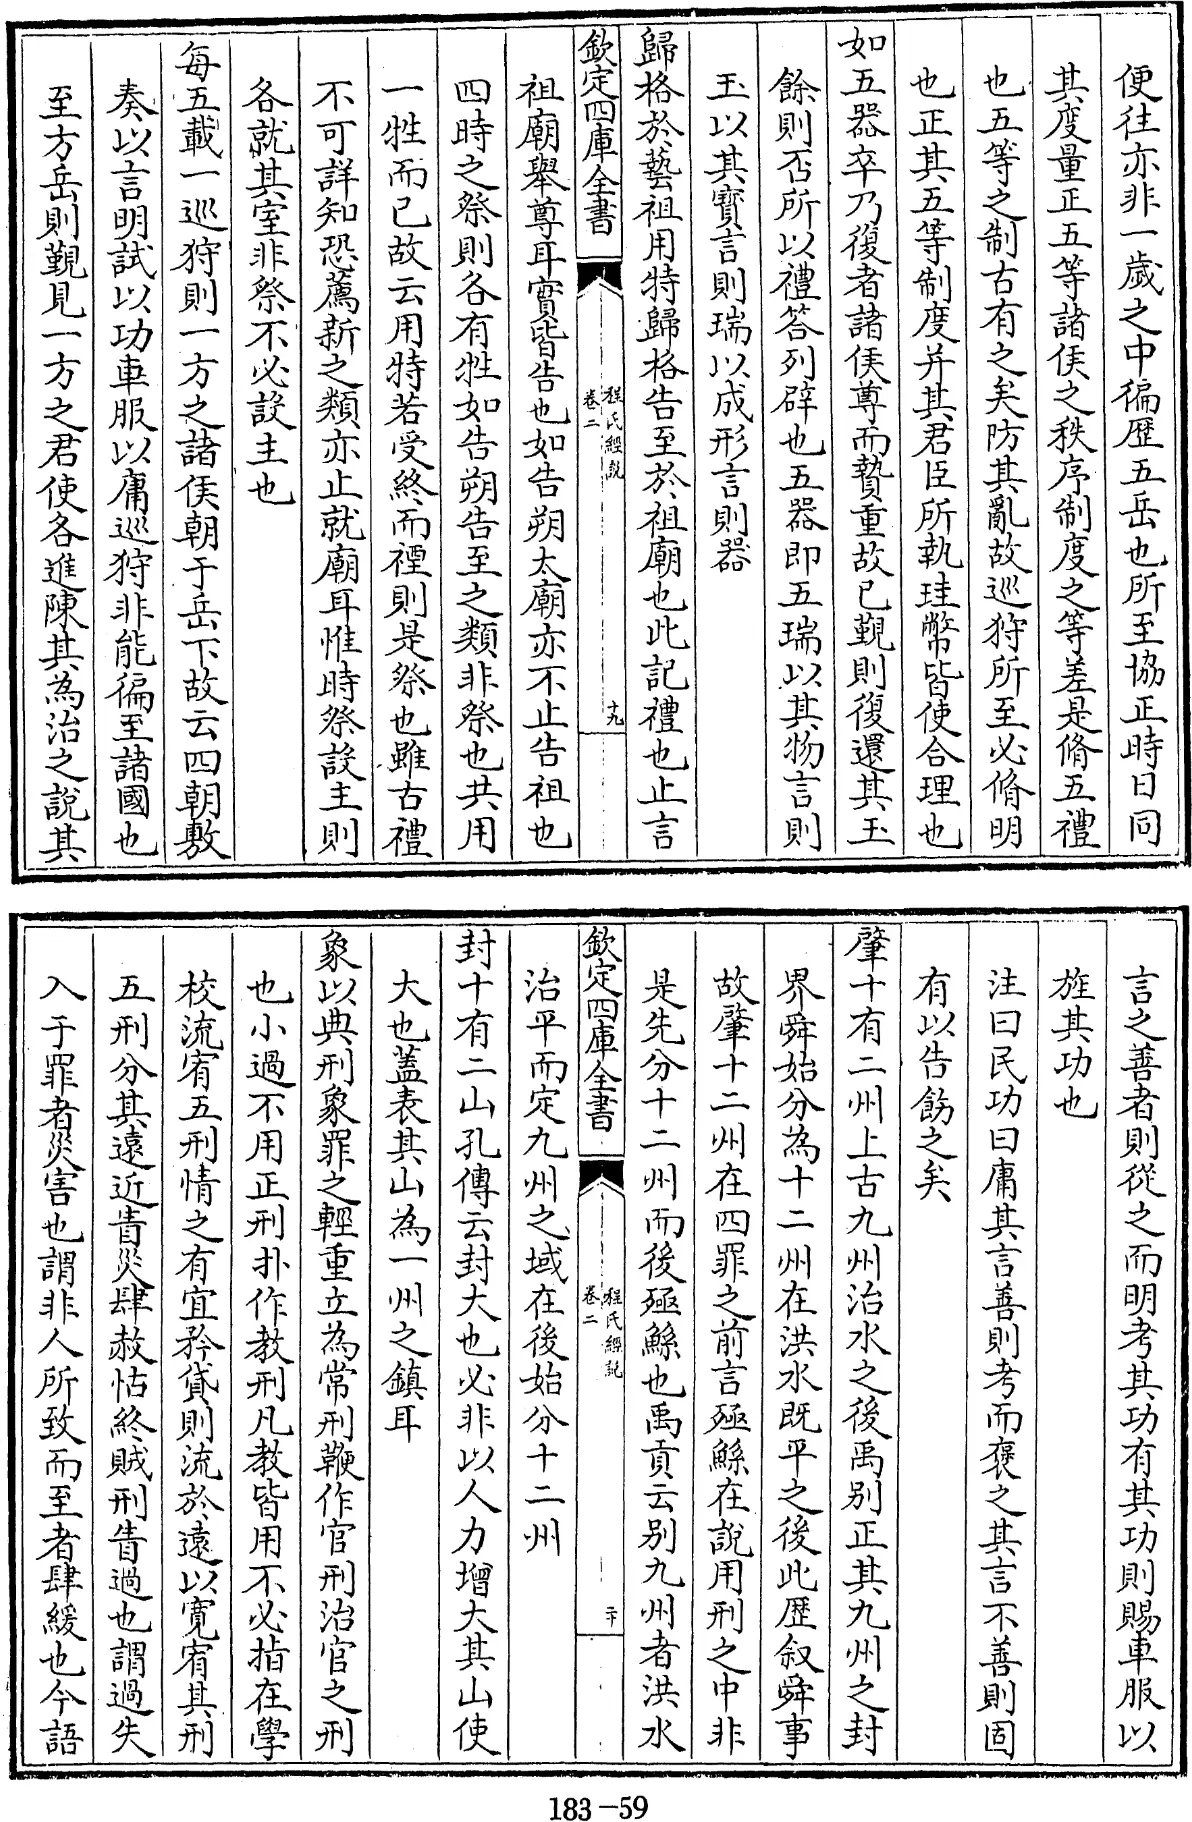 便往亦非一歲之中徧歴五岳也所至協正時日同
其度量正五等諸侯之秩序制度之等差是脩五禮
也五等之制古有之矣防其亂故巡狩所至必脩明
也正其五等制度并其君臣所執珪幣皆使合理也
如五器卒乃復者諸侯尊而贄重故已覲則復還其玉
餘則否所以禮答列辟也五器即五瑞以其物言則
玉以其寳言則瑞以成形言則器
歸格於藝祖用特歸格告至於祖廟也此記禮也止言
欽定四庫全書
程氏經說
卷二
十九
祖廟舉尊耳實皆告也如告朔太廟亦不止告祖也
四時之祭則各有牲如告朔告至之類非祭也共用
一牲而已故云用特若受終而禋則是祭也雖古禮
不可詳知恐薦新之類亦止就廟耳惟時祭設主則
各就其室非祭不必設主也
每五載一巡狩則一方之諸侯朝于岳下故云四朝敷
奏以言明試以功車服以庸巡狩非能徧至諸國也
至方岳則覲見一方之君使各進陳其為治之說其
言之善者則從之而明考其功有其功則賜車服以
旌其功也
注曰民功曰庸其言善則考而褒之其言不善則固
有以告飭之矣
肇十有二州上古九州治水之後禹别正其九州之封
界舜始分為十二州在洪水既平之後此歴叙舜事
故肇十二州在四罪之前言殛鯀在說用刑之中非
是先分十二州而後殛鯀也禹貢云别九州者洪水
欽定四庫全書
程氏經說
卷二
二十
治平而定九州之域在後始分十二州
封十有二山孔傳云封大也必非以人力增大其山使
大也蓋表其山為一州之鎮耳
象以典刑象罪之輕重立為常刑鞭作官刑治官之刑
也小過不用正刑扑作教刑凡教皆用不必指在學
校流宥五刑情之有宜矜貸則流於遠以寬宥其刑
五刑分其遠近眚災肆赦怙終賊刑眚過也謂過失
入于罪者災害也謂非人所致而至者肆緩也今語
183-59